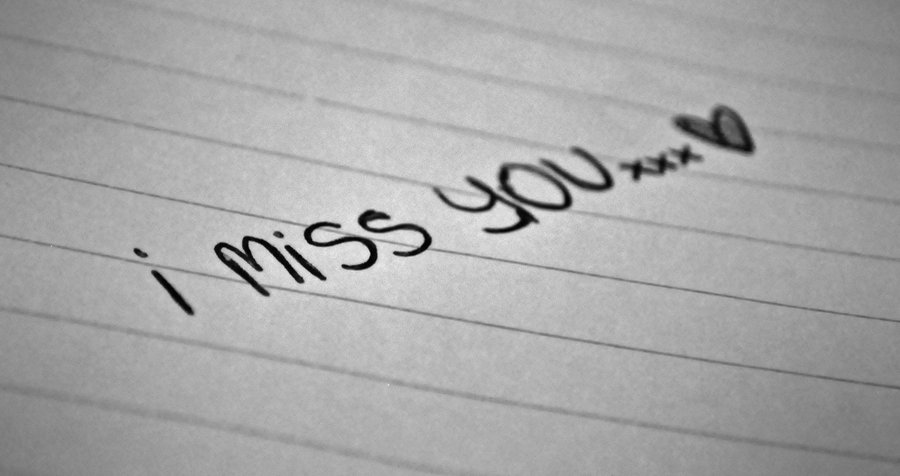 i miss you xxx ♥